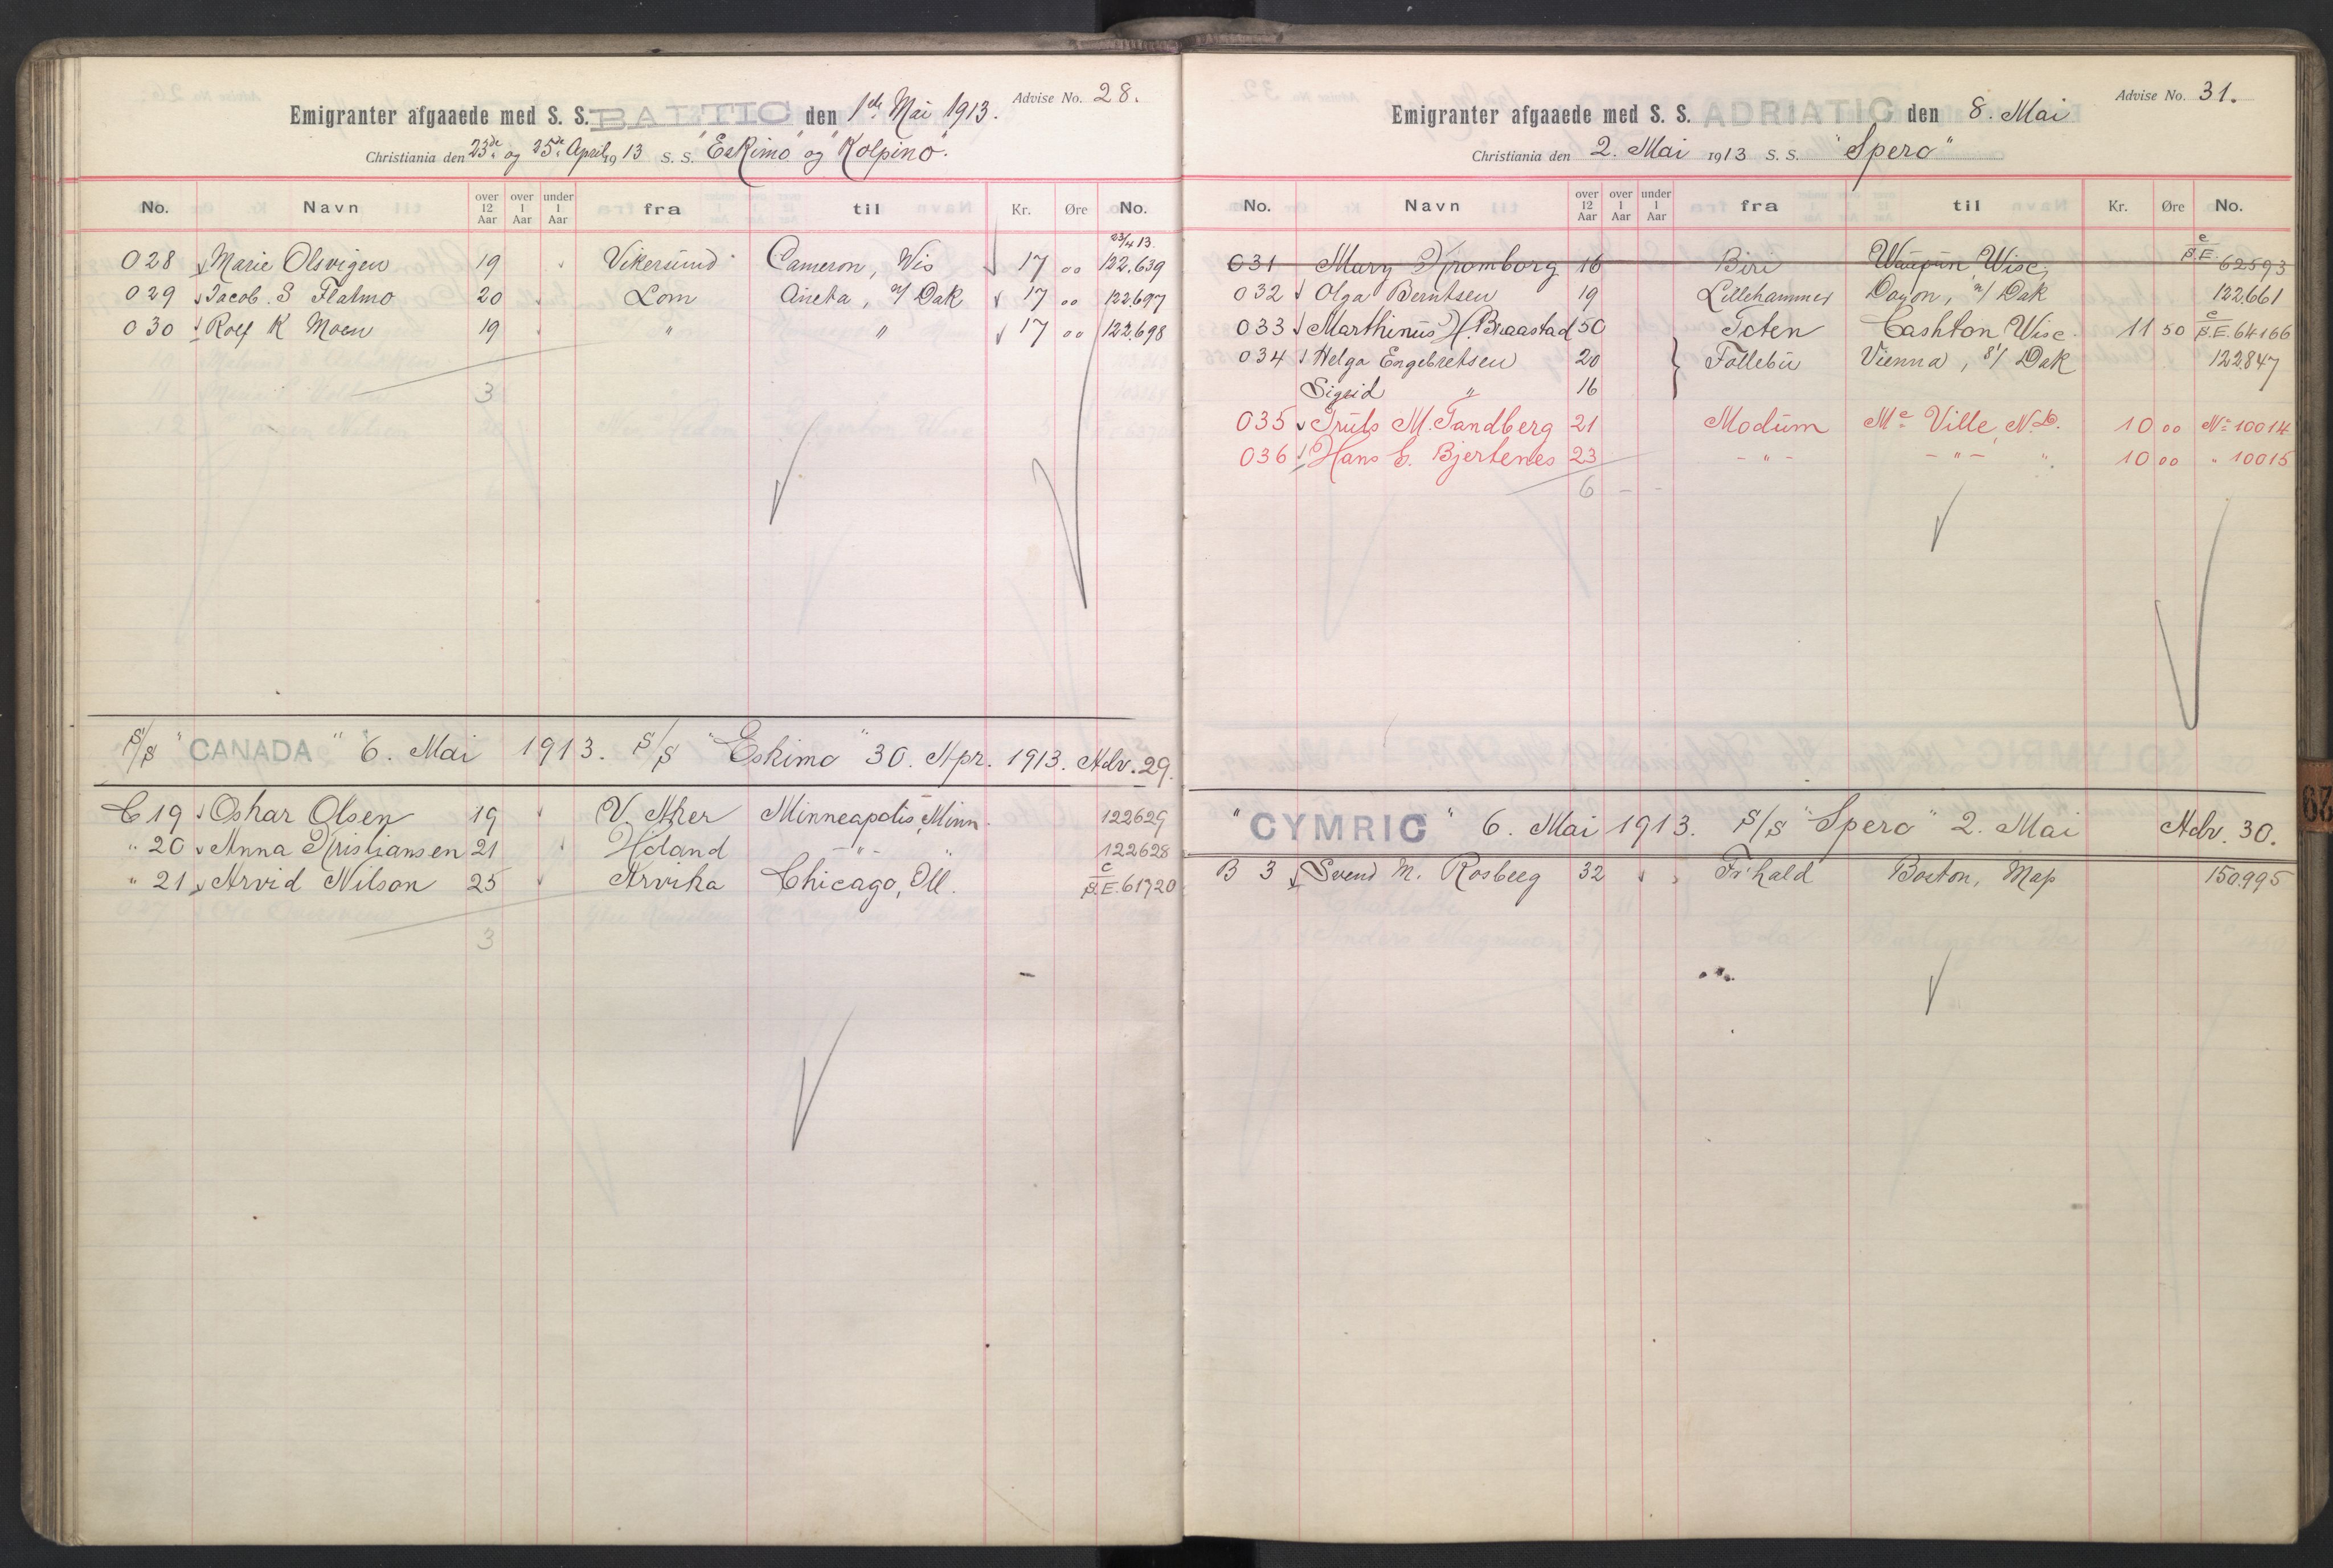 Advise No. 28.
Emigranter afgaaede med S. S. BALTIC den 1de Mai 1913.
Christiania den 23de og 25de April 1913 S. S. "Eskimo" og "Kolpino".
No. Navn over 12 Aar over 1 Aar under 1 Aar fra til Kr. Øre No.
23/4 13.
028 Marie Olsvigen 19 Vikersund Cameron, Wis 17 00 122.639
029 Jacob. S Flatmo 20 Lom Aneta, n/ Dak 17 00 122.697
030 Rolf K Moen 19 " " 17 00 122.698
3
S/S "CANADA" 6. Mai 1913. S/S "Eskimo" 30. Apr. 1913. Adv. 29.
C 19 Oskar Olsen 19 V. Aker Minneapolis, Minn. 122629
" 20 Anna Kristiansen 21 Høland - " - " 122628
" 21 Arvid Nilson 25 Arvika Chicago, Ill. c/S.E. 61720
3
Advise No. 31.
Emigranter afgaaede med S. S. ADRIATIC den 8. Mai
Christiania den 2. Mai 1913 S. S. "Spero"
No. Navn over 12 Aar over 1 Aar under 1 Aar fra til Kr. Øre No.
031 Mary Kromborg 16 Biri Waupun, Wisc, c/S.E. 62593
032 Olga Berntsen 19 Lillehammer n/ Dak 122.661
033 Marthinus H. Braastad 50 Toten Cashton Wisc. 11 50 c/S.E. 64166
034 Helga Engebretsen 20 Follebu Vienna, S/ Dak 122.847
Sigrid " 16
035 Truls M. Tandberg 21 Modum Mc Ville, N.D. 10 00 No 10014
036 Hans C. Bjertenes 23 - " - - " - " 10 00 " 10015
6 - -
"CYMRIC" 6. Mai 1913. S/S "Spero" 2. Mai Adv. 30.
B 3 Svend M. Rosberg 32 Fr'hald Boston, Mass 150.995